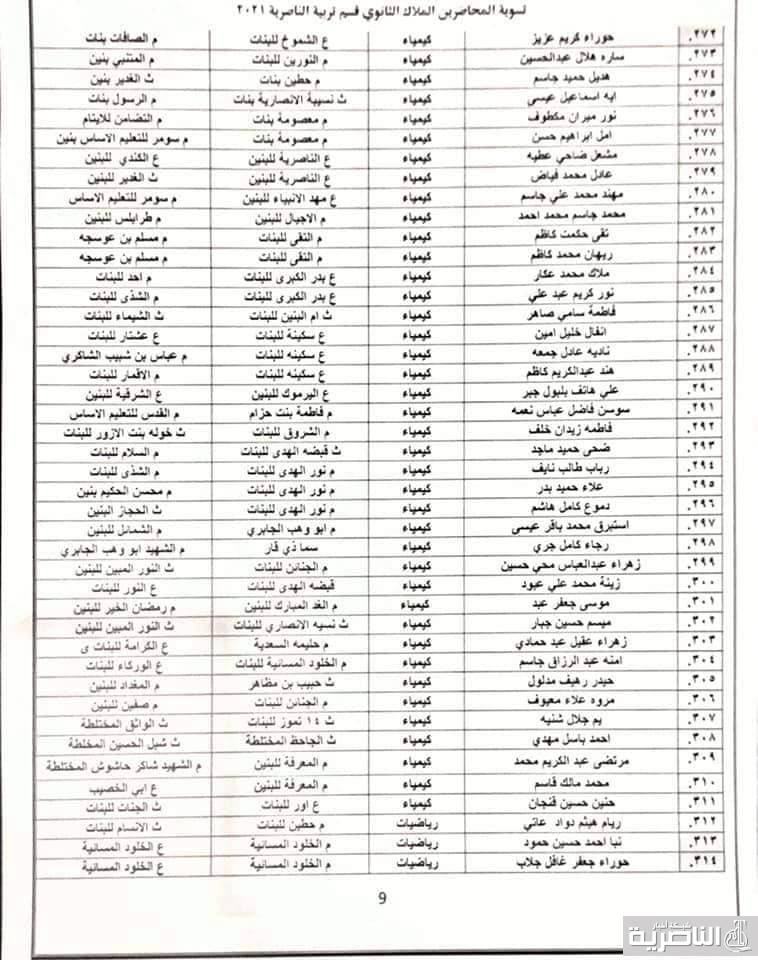 تسوية المحاضرين الملاك الثانوي قسم تربية الناصرية ٢٠٢١
٢٧٢. حوراء كريم عزيز كيمياء ع الشموخ للبنات م الصافات بنات
٢٧٣. ساره هلال عبدالحسين كيمياء م النورين للبنات م المتنبي بنين
٢٧٤. هديل حميد جاسم كيمياء م حطين بنات ث الغدير بنين
٢٧٥. ايه اسماعيل عيسى كيمياء ث نسيبة الانصارية بنات م الرسول بنات
٢٧٦. نور ميران مكطوف كيمياء م معصومة بنات م التضامن للايتام
٢٧٧. امل ابراهيم حسن كيمياء م معصومة بنات م سومر للتعليم الاساس بنين
٢٧٨. مشعل ضاحي عطيه كيمياء ع الناصرية للبنين ع الكندي للبنين
٢٧٩. عادل محمد فياض كيمياء ع الناصرية للبنين ث الغدير للبنين
٢٨٠. مهند محمد علي جاسم كيمياء ع مهد الانبياء للبنين م سومر للتعليم الاساس
٢٨١. محمد جاسم محمد احمد كيمياء م الاجيال للبنين م طرابلس للبنين
٢٨٢. تقى حكمت كاظم كيمياء م التقى للبنات م مسلم بن عوسجه
٢٨٣. ريهان محمد كاظم كيمياء م التقى للبنات م مسلم بن عوسجه
٢٨٤. ملاك محمد عكار كيمياء ع بدر الكبرى للبنات م احد للبنات
٢٨٥. نور كريم عبد علي كيمياء ع بدر الكبرى للبنات م الشذى للبنات
٢٨٦. فاطمة سامي صاهر كيمياء ث ام البنين للبنات ث الشيماء للبنات
٢٨٧. انفال خليل امين كيمياء ع سكينة للبنات ع عشتار للبنات
٢٨٨. ناديه عادل جمعه كيمياء ع سكينه للبنات م عباس بن شبيب الشاكري
٢٨٩. هند عبدالكريم كاظم كيمياء ع سكينه للبنات م الاقمار للبنات
٢٩٠. علي هاتف بلبول جبر كيمياء ع اليرموك للبنين ع الشرقية للبنين
٢٩١. سوسن فاضل عباس نعمه كيمياء م فاطمة بنت حزام م القدس للتعليم الاساس
٢٩٢. فاطمه زيدان خلف كيمياء م الشروق للبنات ث خوله بنت الازور للبنات
٢٩٣. ضحى حميد ماجد كيمياء ث قبضه الهدى للبنات م السلام للبنات
٢٩٤. رباب طالب نايف كيمياء م نور الهدى للبنات م الشذى للبنات
٢٩٥. علاء حميد بدر كيمياء م نور الهدى للبنات م محسن الحكيم بنين
٢٩٦. دموع كامل هاشم كيمياء م نور الهدى للبنات ث الحجاز البنين
٢٩٧. استبرق محمد باقر عيسى كيمياء م ابو وهب الجابري م الشمائل للبنين
٢٩٨. رجاء كامل جري كيمياء سما ذي قار م الشهيد ابو وهب الجابري
٢٩٩. زهراء عبدالعباس محي حسين كيمياء م الجنائن للبنات ث النور المبين للبنين
٣٠٠. زينة محمد علي عبود كيمياء قبضه الهدى للبنات ع النور للبنات
٣٠١. موسى جعفر عبد كيمياء م الغد المبارك للبنين م رمضان الخير للبنين
٣٠٢. ميسم حسين جبار كيمياء ث نسيه الانصاري للبنات ث النور المبين للبنين
٣٠٣. زهراء عقيل عبد حمادي كيمياء م حليمه السعدية ع الكرامة للبنات ى
٣٠٤. امنه عبد الرزاق جاسم كيمياء م الخلود المسائية للبنات ع الوركاء للبنات
٣٠٥. حيدر رهيف مدلول كيمياء ث حبيب بن مظاهر م المغداد للبنين
٣٠٦. مروه علاء معيوف كيمياء م الجنائن للبنات م صفين للبنين
٣٠٧. يم جلال شنيه كيمياء ث ١٤ تموز للبنات ث الواثق المختلطة
٣٠٨. احمد باسل مهدي كيمياء ث الجاحظ المختلطة ث شبل الحسين المخلطة
٣٠٩. مرتضى عبد الكريم محمد كيمياء م المعرفة للبنين م الشهيد شاكر حاشوش المختلطة
٣١٠. محمد مالك قاسم كيمياء م المعرفة للبنين ع ابي الخصيب
٣١١. حنين حسين فنجان كيمياء ع اور للبنات ث الجنات للبنات
٣١٢. ريام هيثم دواد عاتي رياضيات م حطين للبنات ث الانسام للبنات
٣١٣. نبا احمد حسين حمود رياضيات م الخلود المسائية ع الخلود المسائية
٣١٤. حوراء جعفر غافل جلاب رياضيات م الخلود المسائية ع الخلود المسائية
9
شبكة اخبار
الناصرية